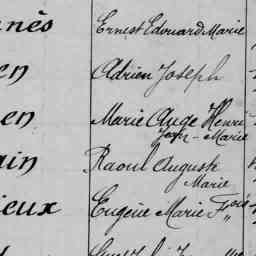 nès Ernest Edouard Marie
en Adrien Joseph
en Marie Auge Henri
Jean-Marie
ain Raoul Auguste
Marie
ieux Eugène Marie Fçois